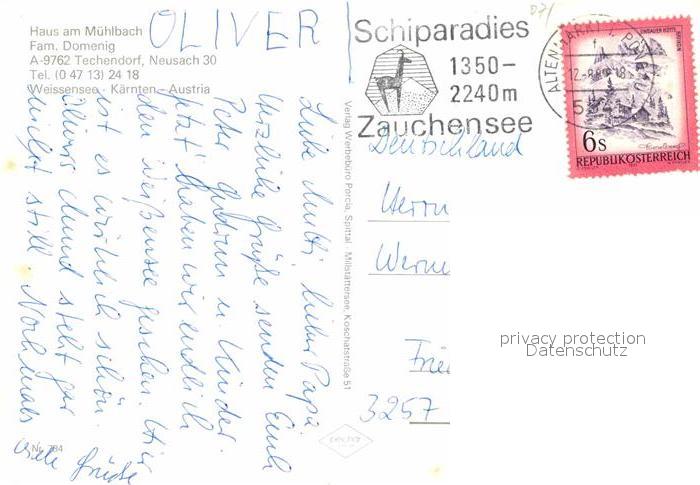 Haus am Mühlbach
Fam. Domenig
A-9762 Techendorf, Neusach 30
Tel. (0 47 13) 24 18
Weissensee - Kärnten - Austria
OLIVER
Liebe Mutti, lieber Papa,
Herzliche Grüße senden Euch
Peter, Gudrun u. Kinder.
Jetzt haben wir endlich
den Weißensee gesehen. Hier
ist es wirklich schön.
Olivers Mund steht gar
nicht still. Nochmals
viele Grüße
Nr. 784
Verlag Werbebüro Percia, Spittal - Millstättersee, Koschatstraße 51
Schiparadies
1350-
2240m
Zauchensee
ALTENMARKT I. PONGAU
6s
REPUBLIK ÖSTERREICH
Deutschland
Herrn
Werne
Frie
3257
privacy protection
Datenschutz